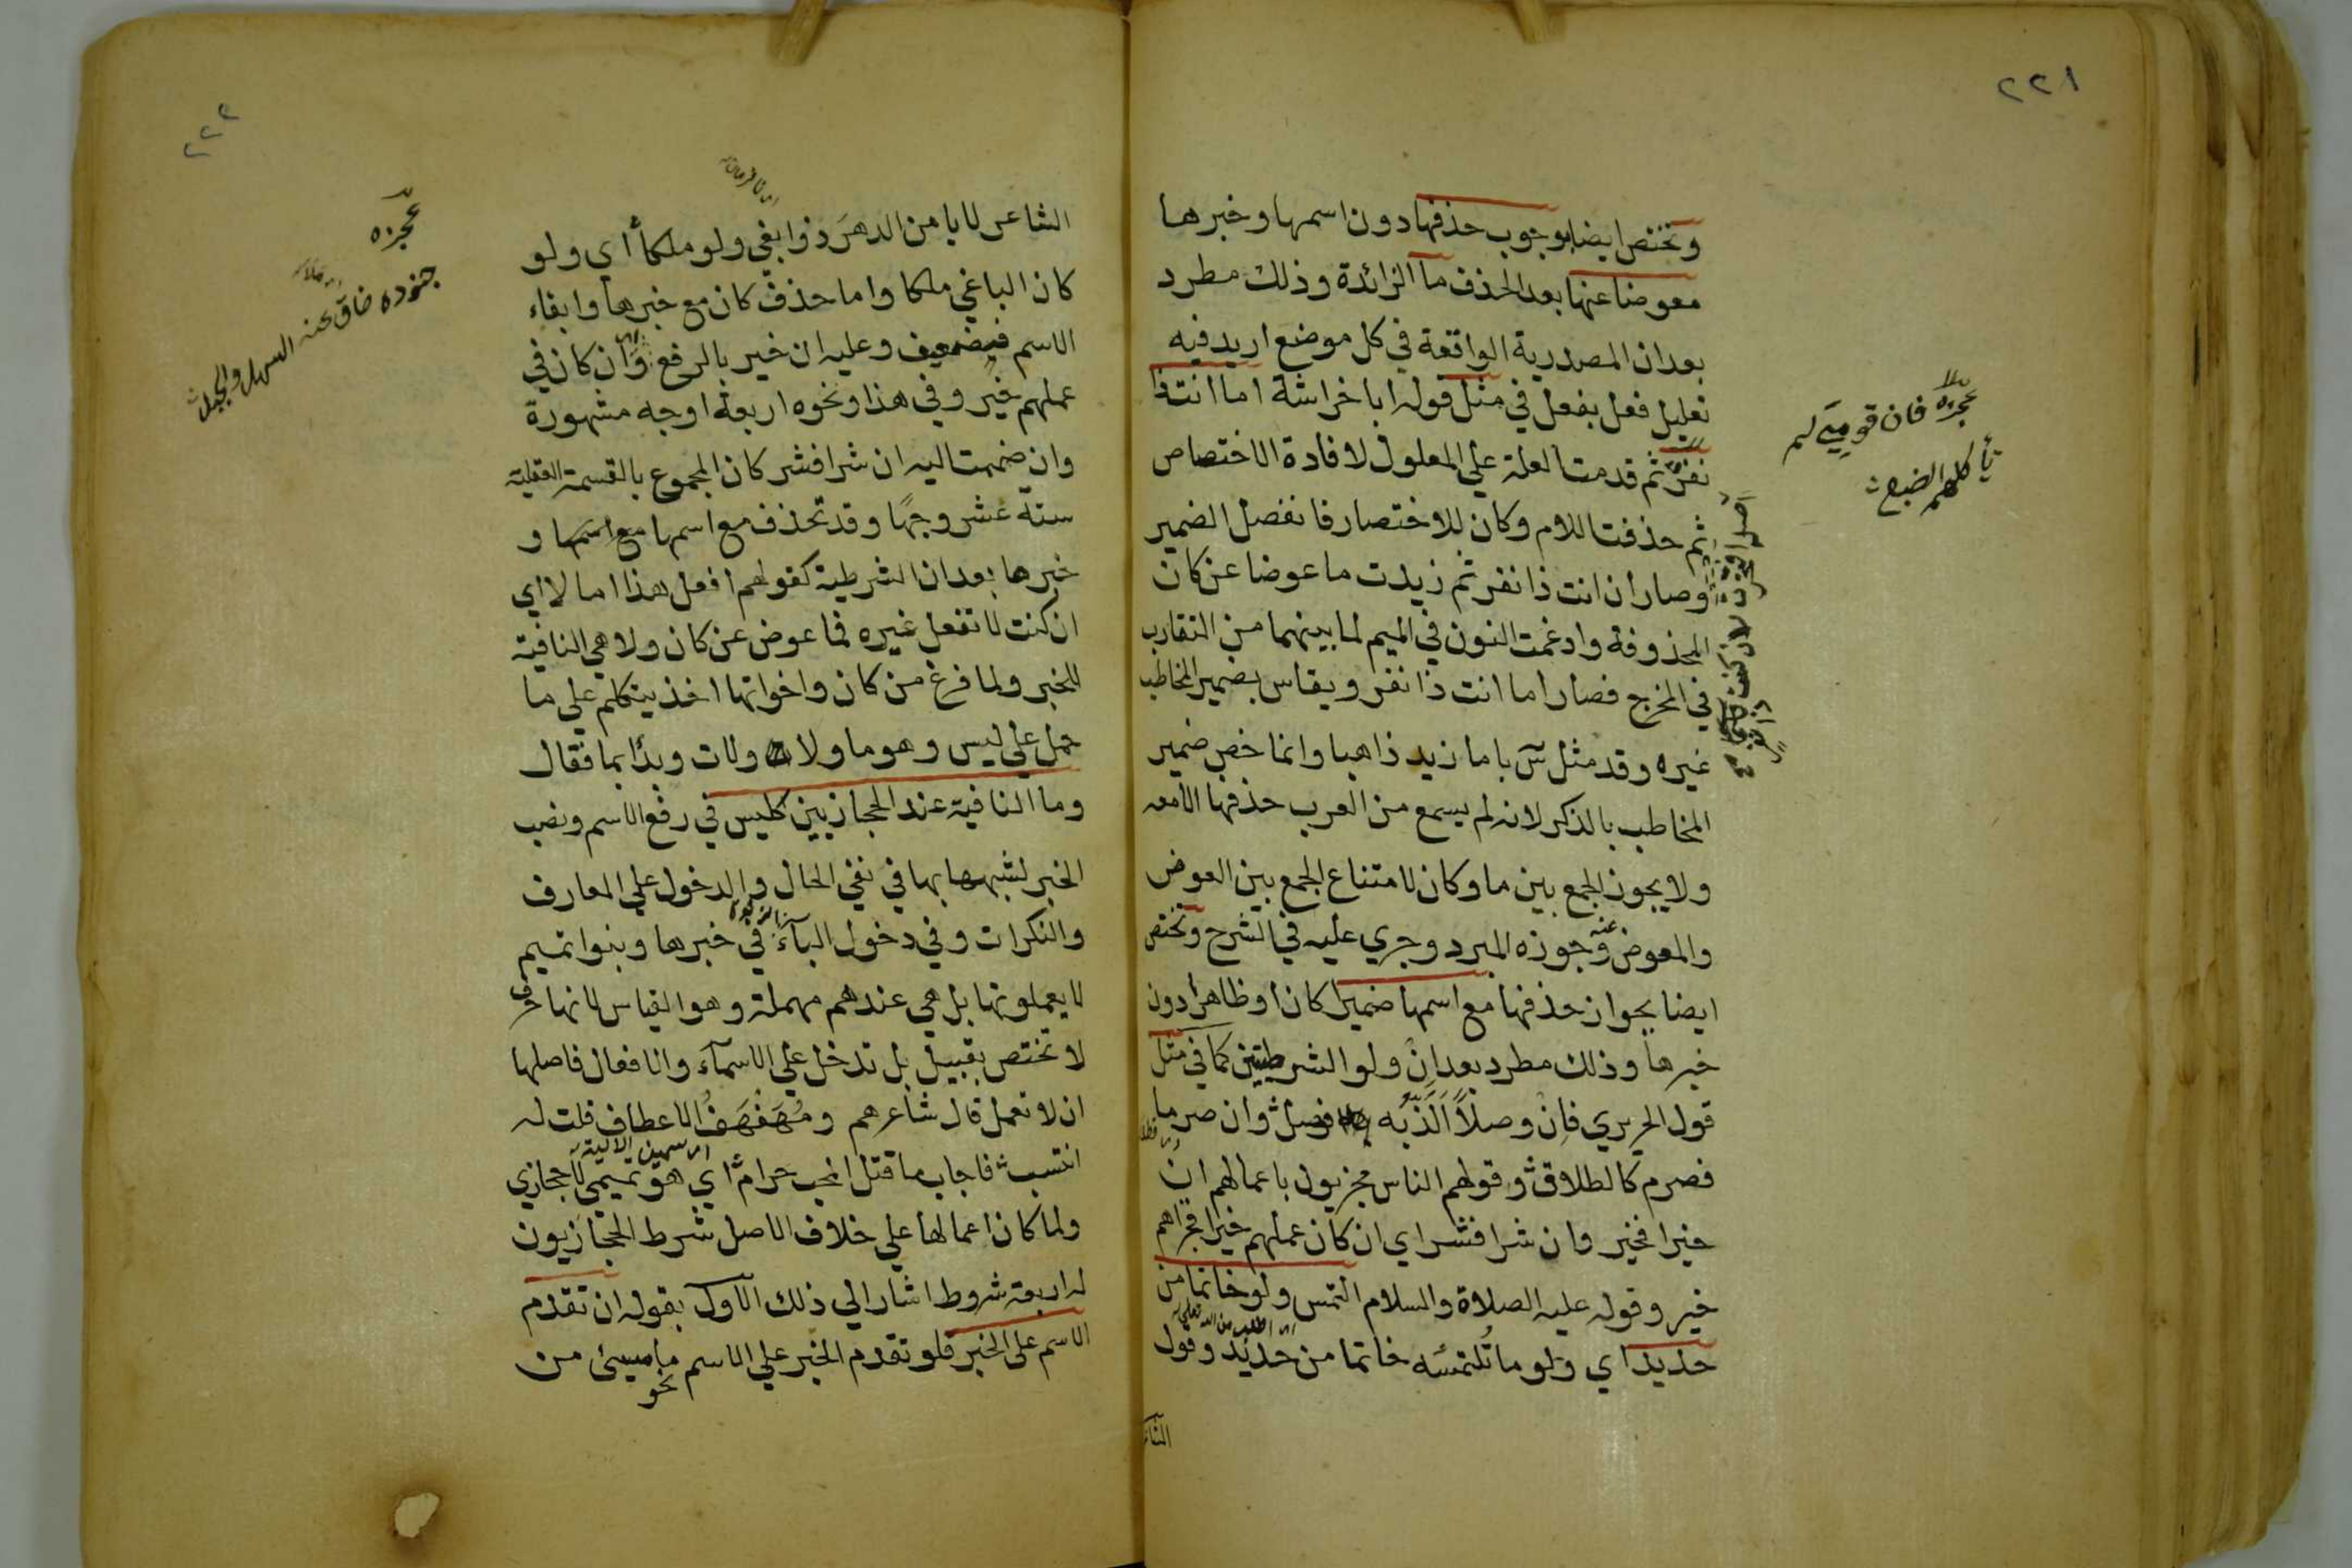 ٢٢١
وتختص ايضا بوجوب حذفها دون اسمها وخبرها
معوضا عنها بعد الحذف ما الزائدة وذلك مطرد
بعد ان المصدرية الواقعة في كل موضع اريد فيه
تعليل فعل بفعل في مثل قوله ابا خراشة اما انت ذا
نفر ثم قدمت العلة علي المعلول لافادة الاختصاص
ثم حذفت اللام وكان للاختصار فانفصل الضمير
وصار أن انت ذا نفر ثم زيدت ما عوضا عن كان
المحذوفة وادغمت النون في الميم لما بينهما من التقارب
في المخرج فصار اما انت ذا نفر ويقاس بضمير المخاطب
غيره وقد مثل س باما زيد ذاهبا وانما خص ضمير
المخاطب بالذكر لانه لم يسمع من العرب حذفها الا معه
ولا يجوز الجمع بين ما وكان لامتناع الجمع بين العوض
والمعوض عنه وجوزه المبرد وجري عليه في الشرح وتختص
ايضا بجواز حذفها مع اسمها ضميرا كان او ظاهرا دون
خبرها وذلك مطرد بعد ان ولو الشرطيتين كما في مثل
قول الحريري فان وصلا الذ به فوصل وان صرما
فصرم كالطلاق وقولهم الناس مجزيون باعمالهم ان
خيرا فخير وان شرا فشر اي ان كان عملهم خيرا فجزاهم
خير وقوله عليه الصلاة والسلام التمس ولو خاتما من
حديد اي ولو ما تلتمسه خاتما من حديد وقول
اي اطلب من الله تعالي
الشاعر
عجزه فان قومي لم
تأكلهم الضبع
٢٢٢
الشاعر لا يا من الدهر ذوا بغي ولو ملكا أي ولو
كان الباغي ملكا واما حذف كان مع خبرها وابقاء
الاسم فضعيف وعليه ان خير بالرفع اي وان كان في
عملهم خير وفي هذا ونحوه اربعة اوجه مشهورة
وان ضممت اليه ان شرا فشر كان المجموع بالقسمة العقلية
ستة عشر وجها وقد تحذف مع اسمها مع اسمها و
خبرها بعد ان الشرطية كقولهم افعل هذا اما لا اي
ان كنت لا تفعل غيره فما عوض عن كان ولا هي النافية
للخبر ولما فرغ من كان واخواتها اخذ يتكلم علي ما
حمل علي ليس وهو ما ولا ولات وبدأ بما فقال
وما النافية عند الحجازيين كليس في رفع الاسم ونصب
الخبر لشبهها بها في نفي الحال والدخول علي المعارف
والنكرات وفي دخول الباء في خبرها وبنوا تميم
لا يعملونها بل هي عندهم مهملة وهو القياس لانها حرف
لا تختص بقبيل بل تدخل علي الاسماء والافعال فاصلها
ان لا تعمل قال شاعرهم ومهفهف الاعطاف قلت له
انتسب فاجاب ما قتل المحب حرام أي هو تميمي لا حجازي
ولما كان اعمالها علي خلاف الاصل شرط الحجازيون
له اربعة شروط اشار الي ذلك الاول بقوله ان تقدم
الاسم علي الخبر فلو تقدم الخبر علي الاسم نحو ما مسيئ من
عجزه
جنوده ضاق عنه السهل والجبل